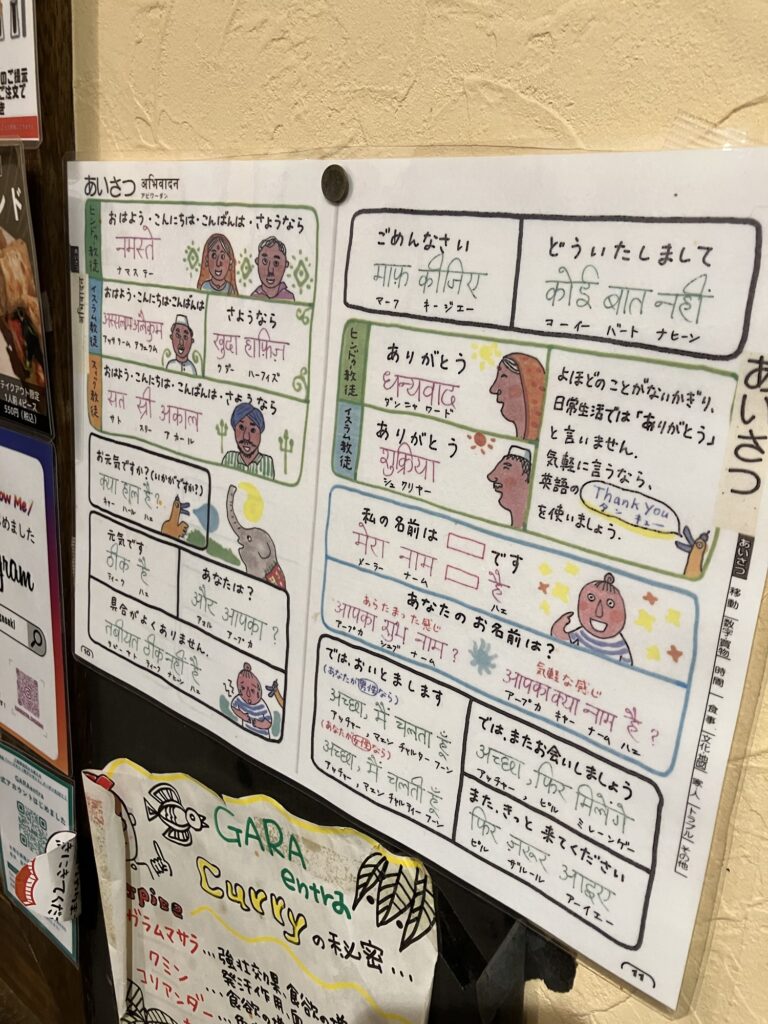 のご提示
ご注文で
ンド
テイクアウト限定
1人前4ピース
550円(税込)
ow Me!
めました
gram
式アカウントはじめました
あいさつ अभिवादन
アビワーダン
ヒンドゥー教徒
おはよう・こんにちは・こんばんは・さようなら
नमस्ते
ナマステー
イスラム教徒
おはよう・こんにちは・こんばんは
अस्सलाम अलैकुम
アッサラーム アラェクム
さようなら
खुदा हाफ़िज़
クダー ハーフィズ
スィク教徒
おはよう・こんにちは・こんばんは・さようなら
सत श्री अकाल
サト スリー アカール
お元気ですか?(いかがですか?)
क्या हाल है?
キャー ハール ハェ
元気です
ठीक है
ティーク ハェ
あなたは?
और आपका?
アォル アープカ
具合がよくありません。
तबीयत ठीक नहीं है
タビーヤト ティーク ナヒーン ハェ
10
ごめんなさい
माफ़ कीजिए
マーフ キージエー
どういたしまして
कोई बात नहीं
コーイー バート ナヒーン
ヒンドゥー教徒
ありがとう
धन्यवाद
ダンニャワード
イスラム教徒
ありがとう
शुक्रिया
シュクリヤー
よほどのことがないかぎり、
日常生活では「ありがとう」
と言いません.
気軽に言うなら、
英語の Thank you
タンキュー
を使いましょう.
私の名前は です
मेरा नाम है
メーラー ナーム ハェ
あなたのお名前は?
あらたまった感じ
आपका शुभ नाम?
アープカ シュブ ナーム
気軽な感じ
आपका क्या नाम है?
アープカ キャー ナーム ハェ
では、おいとまします
(あなたが男性なら)
अच्छा, मैं चलता हूँ
アッチャー, マェン チャルター フーン
(あなたが女性なら)
अच्छा, मैं चलती हूँ
アッチャー, マェン チャルティー フーン
では、またお会いしましょう
अच्छा, फिर मिलेंगे
アッチャー, ピル ミレーンゲー
また、きっと来てください
फिर ज़रूर आइए
ピル ザルール アーイエー
11
あいさつ
あいさつ
移動
数字買物
時間
食事
文化
家人
トラブル
その他
GARA
entra
Curryの秘密...
spice
ガラムマサラ...強壮効果 食欲の増
クミン
発汗作用
コリアンダー...食欲の増